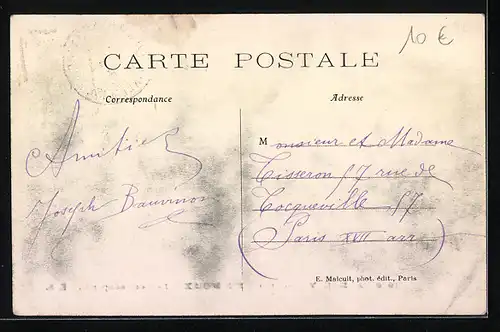 10 €
CARTE POSTALE
Correspondance
Adresse
Amitiés
Joseph
Monsieur et Madame
Tisseron 57 rue de
Tocqueville 57
(Paris XVII arr)
E. Malcuit, phot. édit., Paris